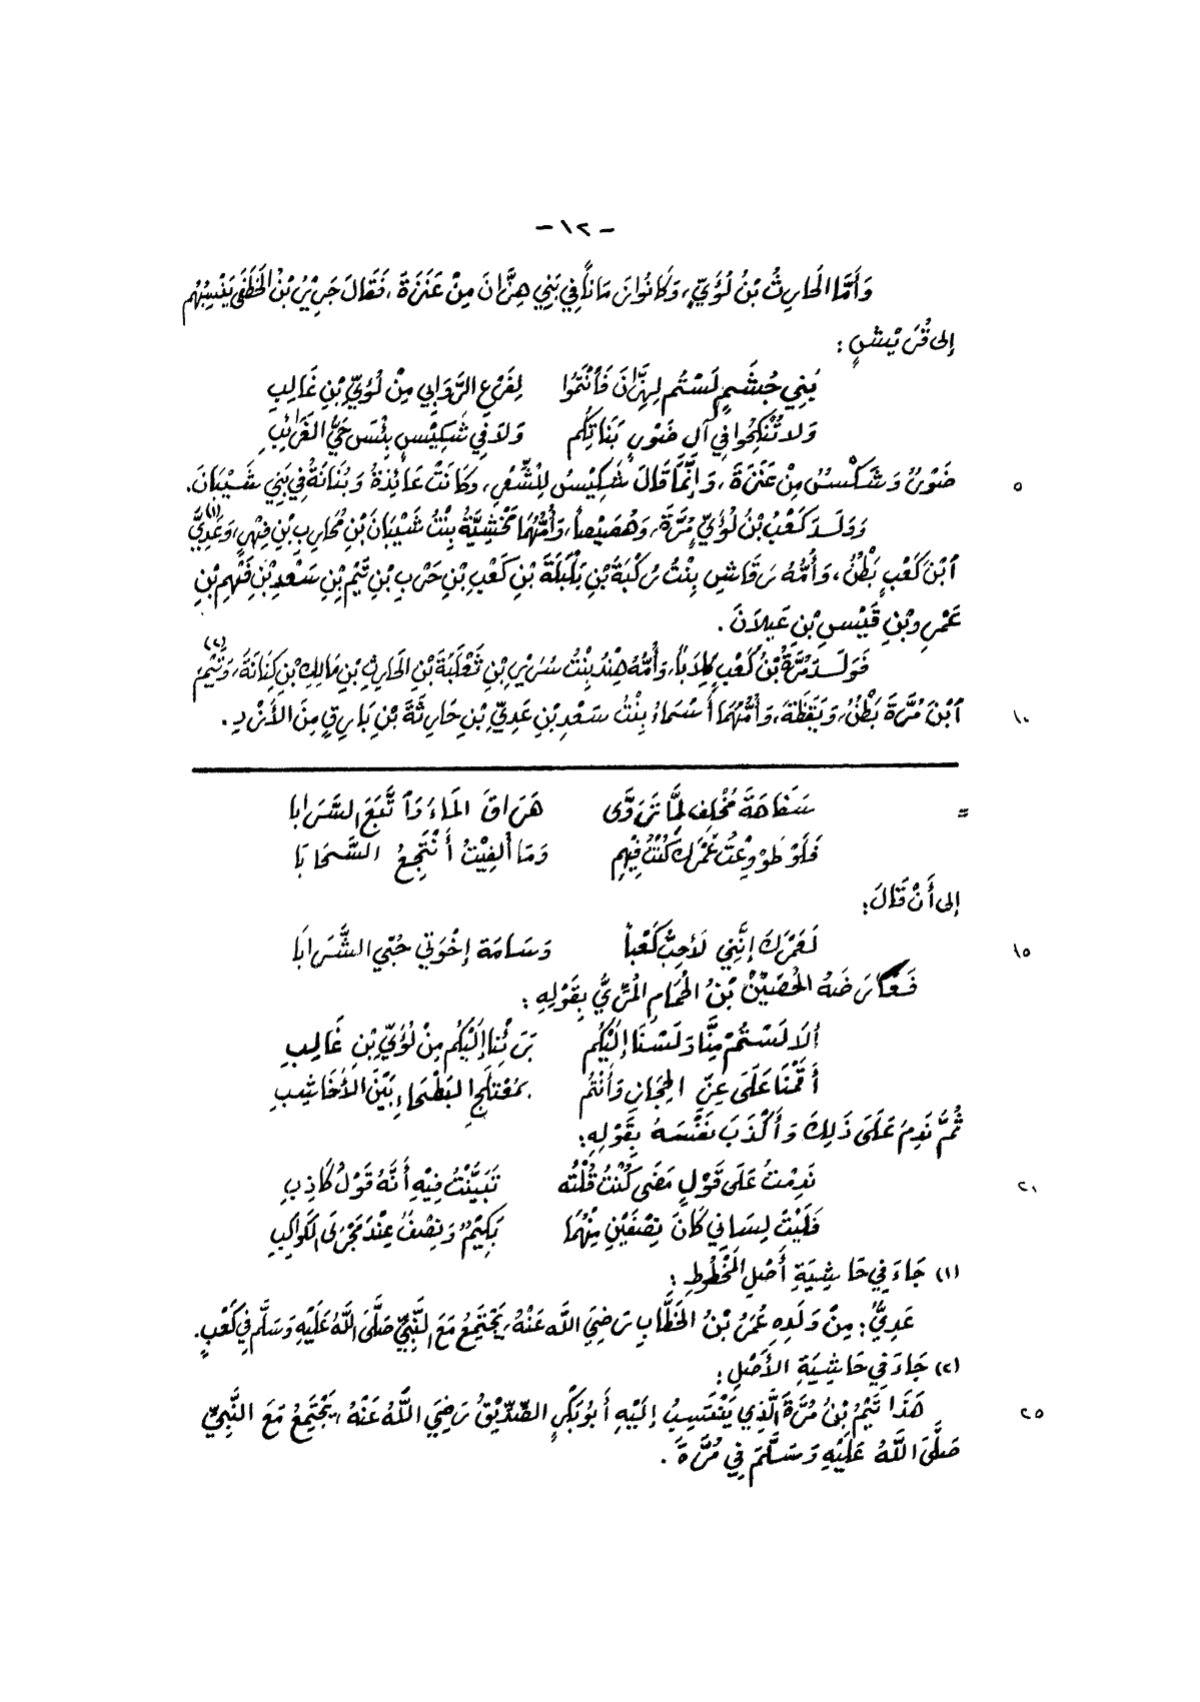 -١٢-
وَأَمَّا الْحَارِثُ بْنُ لُؤَيٍّ، وَكَانُوا زَمَانًا فِي بَنِي هِزَّانَ مِنْ عَنَزَةَ، فَقَالَ جَرِيْرُ بْنُ الْخَطَفَى يَنْسِبُهُم
إلى قُرَيْشٍ:
بَنِي جُشَمٍ لَسْتُم لِهِزَّانَ فَانْتَمُوا لِفَرْعِ الرَّوَابِي مِنْ لُؤَيِّ بْنِ غَالِبِ
وَلا تُنْكِحُوا فِي آلِ ضَوْرٍ بَنَاتِكُم وَلاَ فِي شَكِيْسٍ بِئْسَ حَيُّ الغَرَائِبِ
٥ ضَوْرٌ وَشَكْسٌ مِنْ عَنَزَةَ، وَإِنَّمَا قَالَ شَكِيْسٌ لِلشِّعْرِ، وَكَانَتْ عَائِذَةُ وَبُنَانَةُ فِي بَنِي شَيْبَانَ.
وَوَلَدَ كَعْبُ بْنُ لُؤَيٍّ مُرَّةَ، وَهُصَيْصاً، وَأُمُّهُمَا مَخْشِيَّةُ بِنْتُ شَيْبَانَ بْنِ مُحَارِبِ بْنِ فِهْرٍ، وَعَدِيَّ(١)
ابْنَ كَعْبٍ بَطْنٌ، وَأُمُّهُ رَقَاشِ بِنْتُ رُكْبَةَ بْنِ بَلْبَلَةَ بْنِ كَعْبِ بْنِ حَرْبِ بْنِ تَيْمِ بْنِ سَعْدِ بْنِ فَهْمِ بْنِ
عَمْرِو بْنِ قَيْسِ بْنِ عَيْلاَنَ.
فَوَلَدَ مُرَّةُ بْنُ كَعْبٍ كِلاَباً، وَأُمُّهُ هِنْدُ بِنْتُ سُرَيْرِ بْنِ ثَعْلَبَةَ بْنِ الْحَارِثِ بْنِ مَالِكِ بْنِ كِنَانَةَ، وَتَيْمَ(٢)
١٠ ابْنَ مُرَّةَ بَطْنٌ، وَيَقَظَةَ، وَأُمُّهُمَا أَسْمَاءُ بِنْتُ سَعْدِ بْنِ عَدِيِّ بْنِ حَارِثَةَ بْنِ بَارِقٍ مِنَ الأَزْدِ.
= سَفَاهَةَ مُخْلِفٍ لَمَّا تَرَوَّى هَرَاقَ الْمَاءَ وَاتَّبَعَ السَّرَابا
فَلَوْ طُوْوِعْتُ عَمْرَكَ كُنْتُ فِيْهِم وَمَا أُلْفِيْتُ أَنْتَجِعُ السَّحَابَا
إلى أَنْ قَالَ:
١٥ لَعَمْرُكَ إِنَّنِي لَأُحِبُّ كَعْباً وَسَامَة إخْوَتِي حُبِّي الشَّرَابَا
فَعَارَضَهُ الْحُصَيْنُ بْنُ الْحُمَامِ الْمُرِّيُّ بِقَوْلِهِ:
أَلاَ لَسْتُمْ مِنَّا وَلَسْنَا إِلَيْكُم بَرِئْنَا إِلَيْكُم مِنْ لُؤَيِّ بْنِ غَالِبِ
أَقَمْنَا عَلَى عِزِّ الْحِجَازِ وَأَنْتُم بِمُعْتَلَجِ البَطْحَاءِ بَيْنَ الأَخَاشِبِ
ثُمَّ نَدِمَ عَلَى ذَلِكَ وَأَكْذَبَ نَفْسَهُ بِقَوْلِهِ:
٢١ نَدِمْتُ عَلَى قَوْلٍ مَضَى كُنْتُ قُلْتُه تَبَيَّنْتُ فِيْهِ أَنَّهُ قَوْلُ كَاذِبِ
فَلَيْتَ لِسَانِي كَانَ نِصْفَيْنِ مِنْهُمَا بَكِيْمٌ وَنِصْفٌ عِنْدَ مَجْرَى الكَوَاكِبِ
(١) جَاءَ فِي حَاشِيَةِ أَصْلِ المَخْطُوطِ:
عَدِيٌّ: مِنْ وَلَدِهِ عُمَرُ بْنُ الْخَطَّابِ رَضِيَ اللَّه عَنْهُ، يَجْتَمِعُ مَعَ النَّبِيِّ صَلَّى اللَّهُ عَلَيْهِ وَسَلَّم فِي كَعْبٍ.
(٢) جَاءَ فِي حَاشِيَةِ الأَصْلِ:
٢٥ هَذَا تَيْمُ بْنُ مُرَّةَ الَّذِي يَنْتَسِبُ إِلَيْهِ أَبُو بَكْرٍ الصِّدِّيْقُ رَضِيَ اللَّهُ عَنْهُ، يَجْتَمِعُ مَعَ النَّبِيِّ
صَلَّى اللَّهُ عَلَيْهِ وَسَلَّمَ فِي مُرَّةَ.